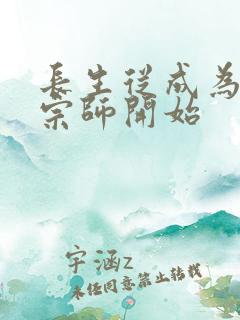 長生從成為
宗師開始
宇涵z
未經同意禁止轉載